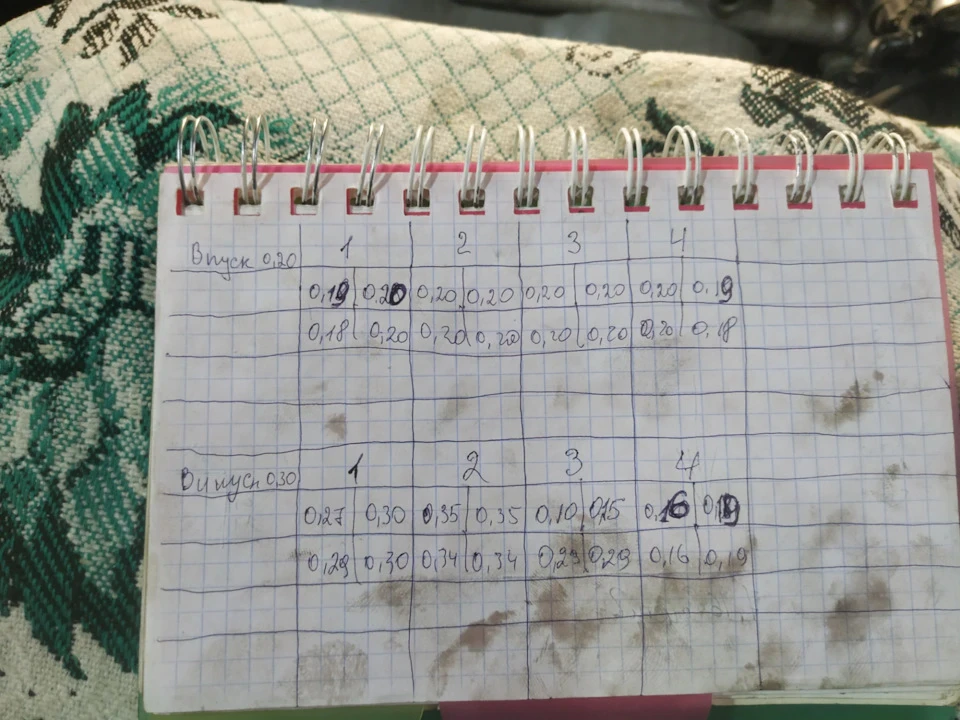 Впуск 0,20 1 2 3 4
0,19 0,20 0,20 0,20 0,20 0,20 0,20 0,19
0,18 0,20 0,20 0,20 0,20 0,20 0,20 0,18
Випуск 0,30 1 2 3 4
0,27 0,30 0,35 0,35 0,10 0,15 0,16 0,19
0,29 0,30 0,34 0,34 0,29 0,29 0,16 0,19